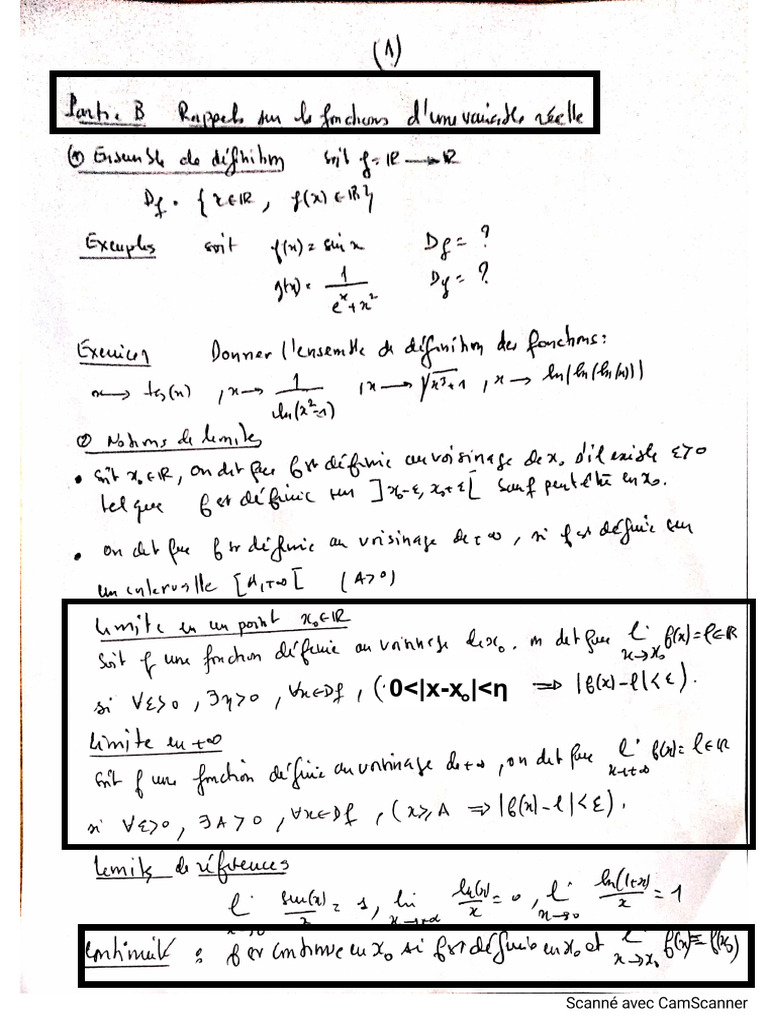 (1)
Partie B Rappels sur les fonctions d'une variable réelle
① Ensemble de définition soit f = ℝ → ℝ
Df = {x∈ℝ, f(x)∈ℝ}
Exemples soit f(x) = sin x Df = ?
g(x) = 1/(e^x + x²) Dg = ?
Exercices Donner l'ensemble de définition des fonctions:
x → tg(x) , x → 1/ln(x²-1) , x → √(x³+1) , x → ln(ln(ln(x)))
② Notions de limites
• soit x₀∈ℝ, on dit que f est définie au voisinage de x₀ s'il existe ε>0
tel que f est définie sur ]x₀-ε, x₀+ε[ sauf peut être en x₀.
• on dit que f est définie au voisinage de +∞, si f est définie sur
un intervalle [A,+∞[ (A>0)
Limite en un point x₀∈ℝ
Soit f une fonction définie au voisinage de x₀. on dit que li x→x₀ f(x) = l∈ℝ
si ∀ε>0, ∃η>0, ∀x∈Df, ( 0<|x-x₀|<η ⟹ |f(x)-l|<ε).
Limite en +∞
Soit f une fonction définie au voisinage de +∞, on dit que li x→+∞ f(x) = l∈ℝ
si ∀ε>0, ∃A>0, ∀x∈Df, (x⩾A ⟹ |f(x)-l|<ε).
Limites de références
li x→0 sin(x)/x = 1, lim x→+∞ ln(x)/x = 0, li x→0 ln(1+x)/x = 1
Continuité : f est continue en x₀ si f est définie en x₀ et li x→x₀ f(x) = f(x₀)
Scanné avec CamScanner